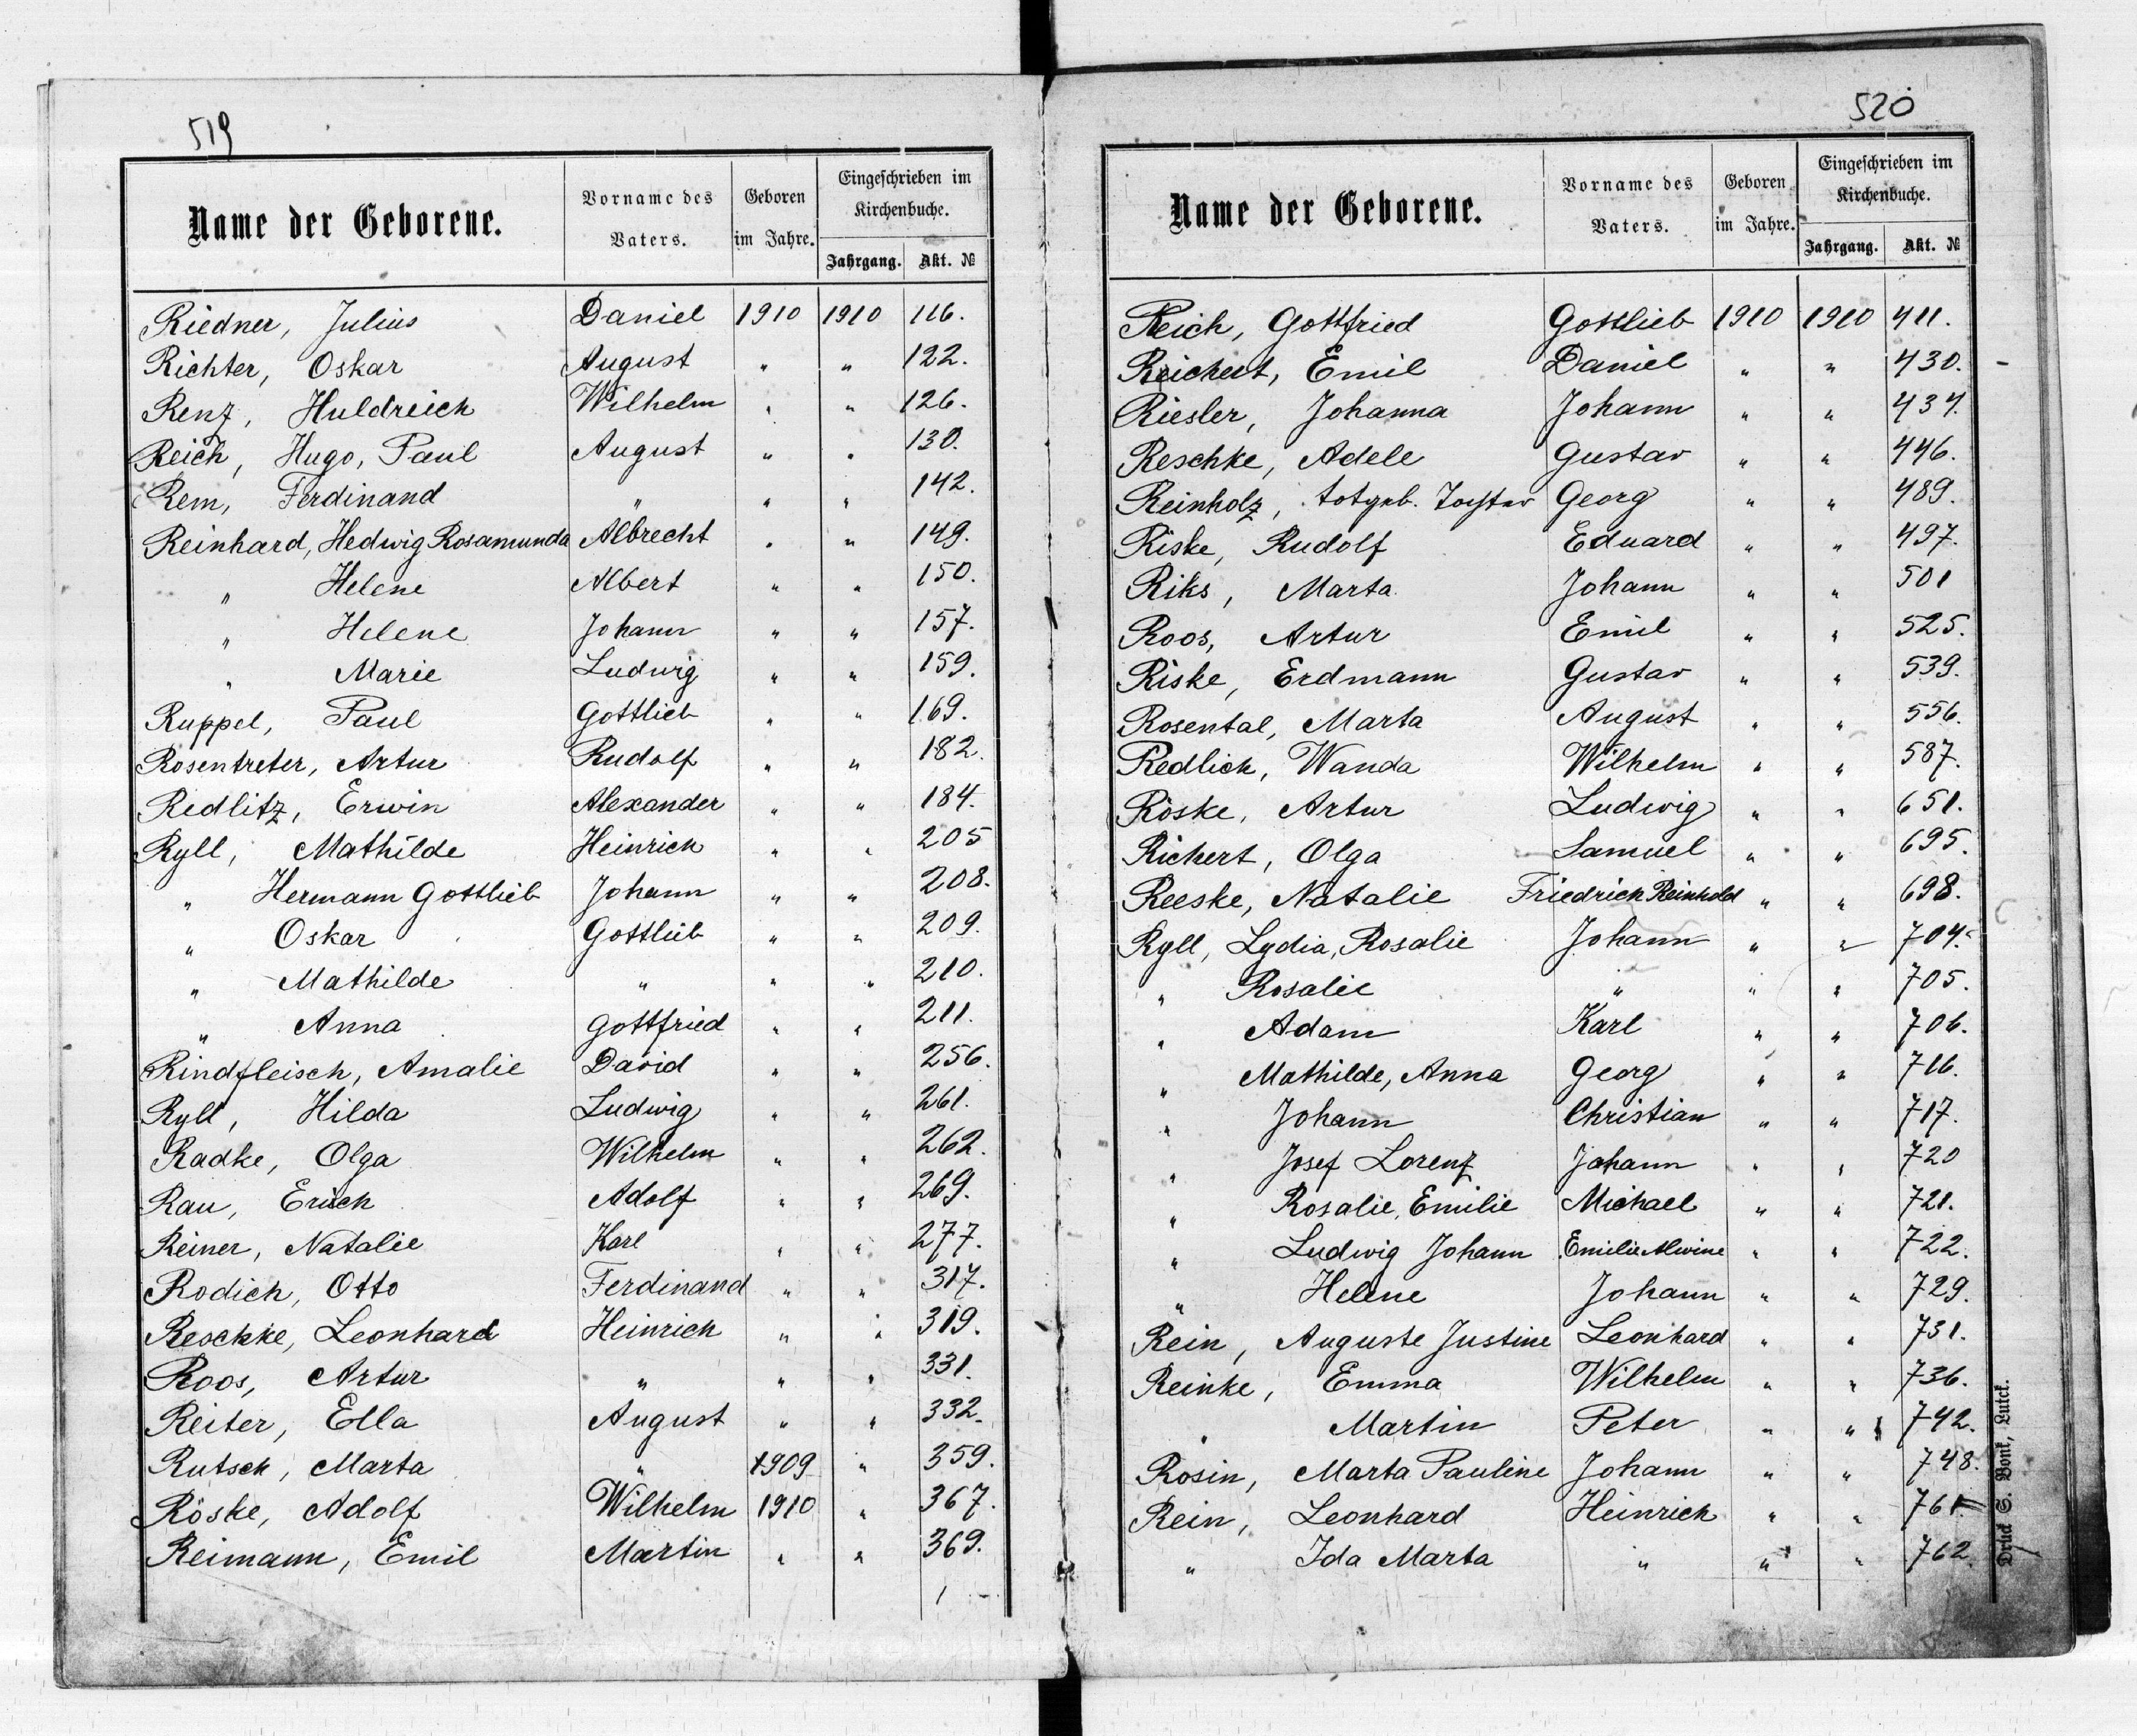 519
Name der Geborene. Vorname des Vaters. Geboren im Jahre. Eingeschrieben im Kirchenbuche.
Jahrgang. Akt. №
Riedner, Julius Daniel 1910 1910 116.
Richter, Oskar August " " 122.
Renz, Huldreich Wilhelm " " 126.
Reich, Hugo, Paul August " " 130.
Rem, Ferdinand " " " 142.
Reinhard, Hedwig Rosamunda Albrecht " " 149.
" Helene Albert " " 150.
" Helene Johann " " 157.
" Marie Ludwig " " 159.
Ruppel, Paul Gottlieb " " 169.
Rosentreter, Artur Rudolf " " 182.
Redlitz, Erwin Alexander " " 184.
Ryll, Mathilde Heinrich " " 205
" Hermann Gottlieb Johann " " 208.
" Oskar Gottlieb " " 209.
" Mathilde " " " 210.
" Anna Gottfried " " 211.
Rindfleisch, Amalie David " " 256.
Ryll, Hilda Ludwig " " 261.
Radke, Olga Wilhelm " " 262.
Rau, Erich Adolf " " 269.
Reiner, Natalie Karl " " 277.
Rodich, Otto Ferdinand " " 317.
Reschke, Leonhard Heinrich " " 319.
Roos, Artur " " " 331.
Reiter, Ella August " " 332.
Rutsch, Marta " 1909 " 359.
Röske, Adolf Wilhelm 1910 " 367.
Reimann, Emil Martin " " 369.
520
Name der Geborene. Vorname des Vaters. Geboren im Jahre. Eingeschrieben im Kirchenbuche.
Jahrgang. Akt. №
Reich, Gottfried Gottlieb 1910 1910 411.
Reichert, Emil Daniel " " 430.
Riesler, Johanna Johann " " 434.
Reschke, Adele Gustav " " 446.
Reinholz, totgeb. Tochter Georg " " 489.
Riske, Rudolf Eduard " " 497.
Riks, Marta Johann " " 501
Roos, Artur Emil " " 525.
Riske, Erdmann Gustav " " 539.
Rosental, Marta August " " 556.
Redlich, Wanda Wilhelm " " 587.
Röske, Artur Ludwig " " 651.
Richert, Olga Samuel " " 695.
Reeske, Natalie Friedrich Reinhold " " 698.
Ryll, Lydia, Rosalie Johann " " 704.
" Rosalie " " " 705.
" Adam Karl " " 706.
" Mathilde, Anna Georg " " 716.
" Johann Christian " " 717.
" Josef Lorenz Johann " " 720
" Rosalie, Emilie Michael " " 721.
" Ludwig Johann Emilie Alwine " " 722.
" Helene Johann " " 729.
Rein, Auguste Justine Leonhard " " 731.
Reinke, Emma Wilhelm " " 736.
" Martin Peter " " 742.
Rosin, Marta Pauline Johann " " 748.
Rein, Leonhard Heinrich " " 761
" Ida Marta " " " 762.
Druck S. Bonk, Lutck.